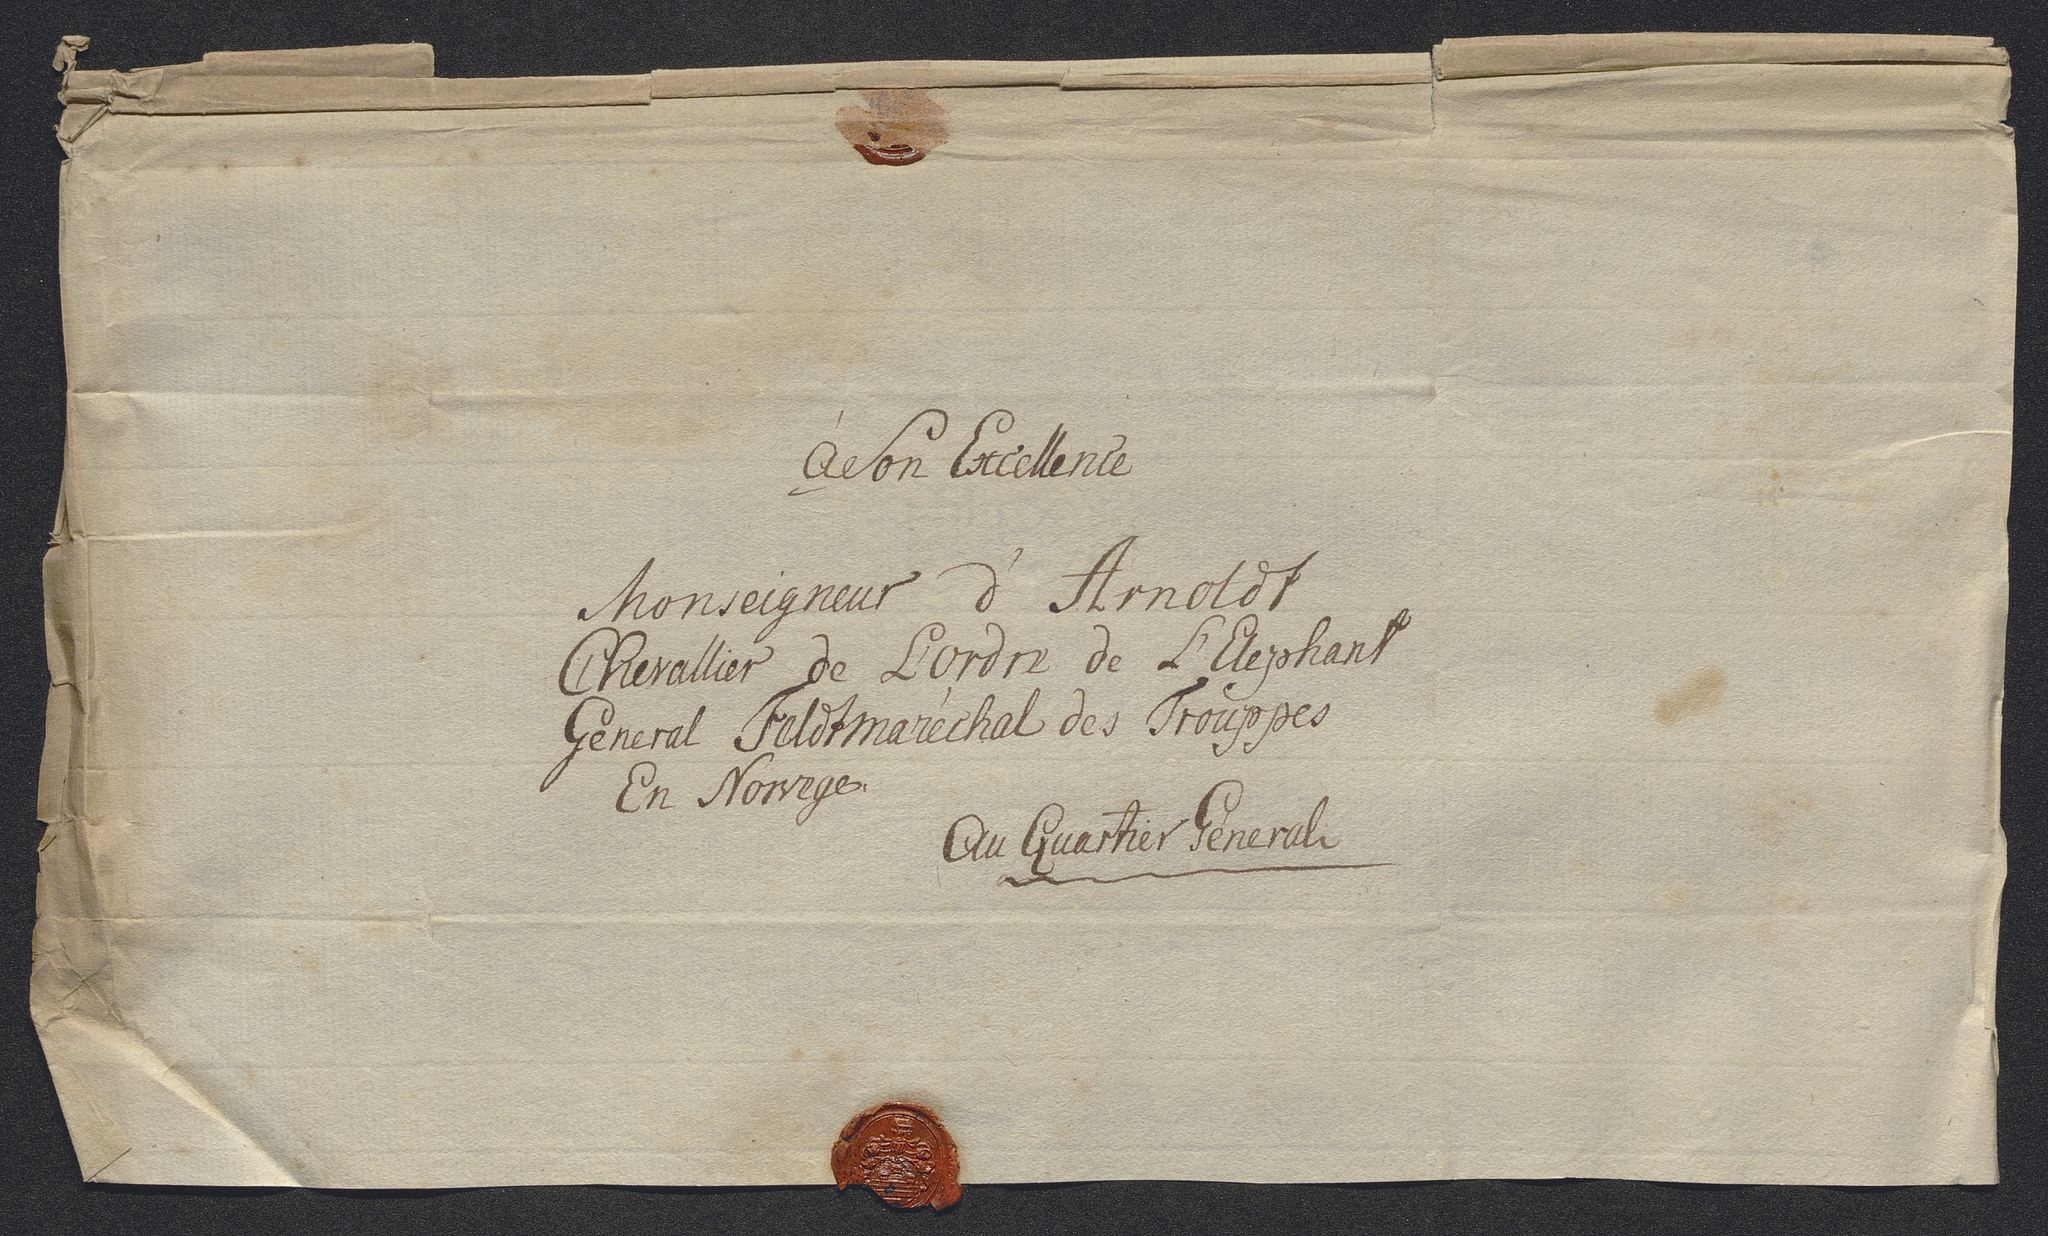 à Son Excellence
Monseigneur d' Arnoldt
Chevallier de L'ordre de L'Elephant
General Feldtmaréchal des Trouppes
En Norvege.
Au Quartier Géneral